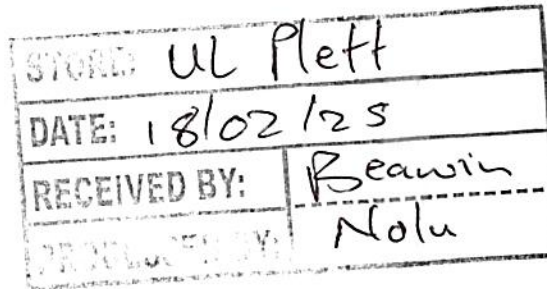 STORE: UL Plett
DATE: 18/02/25
RECEIVED BY: Beawin
Nolu